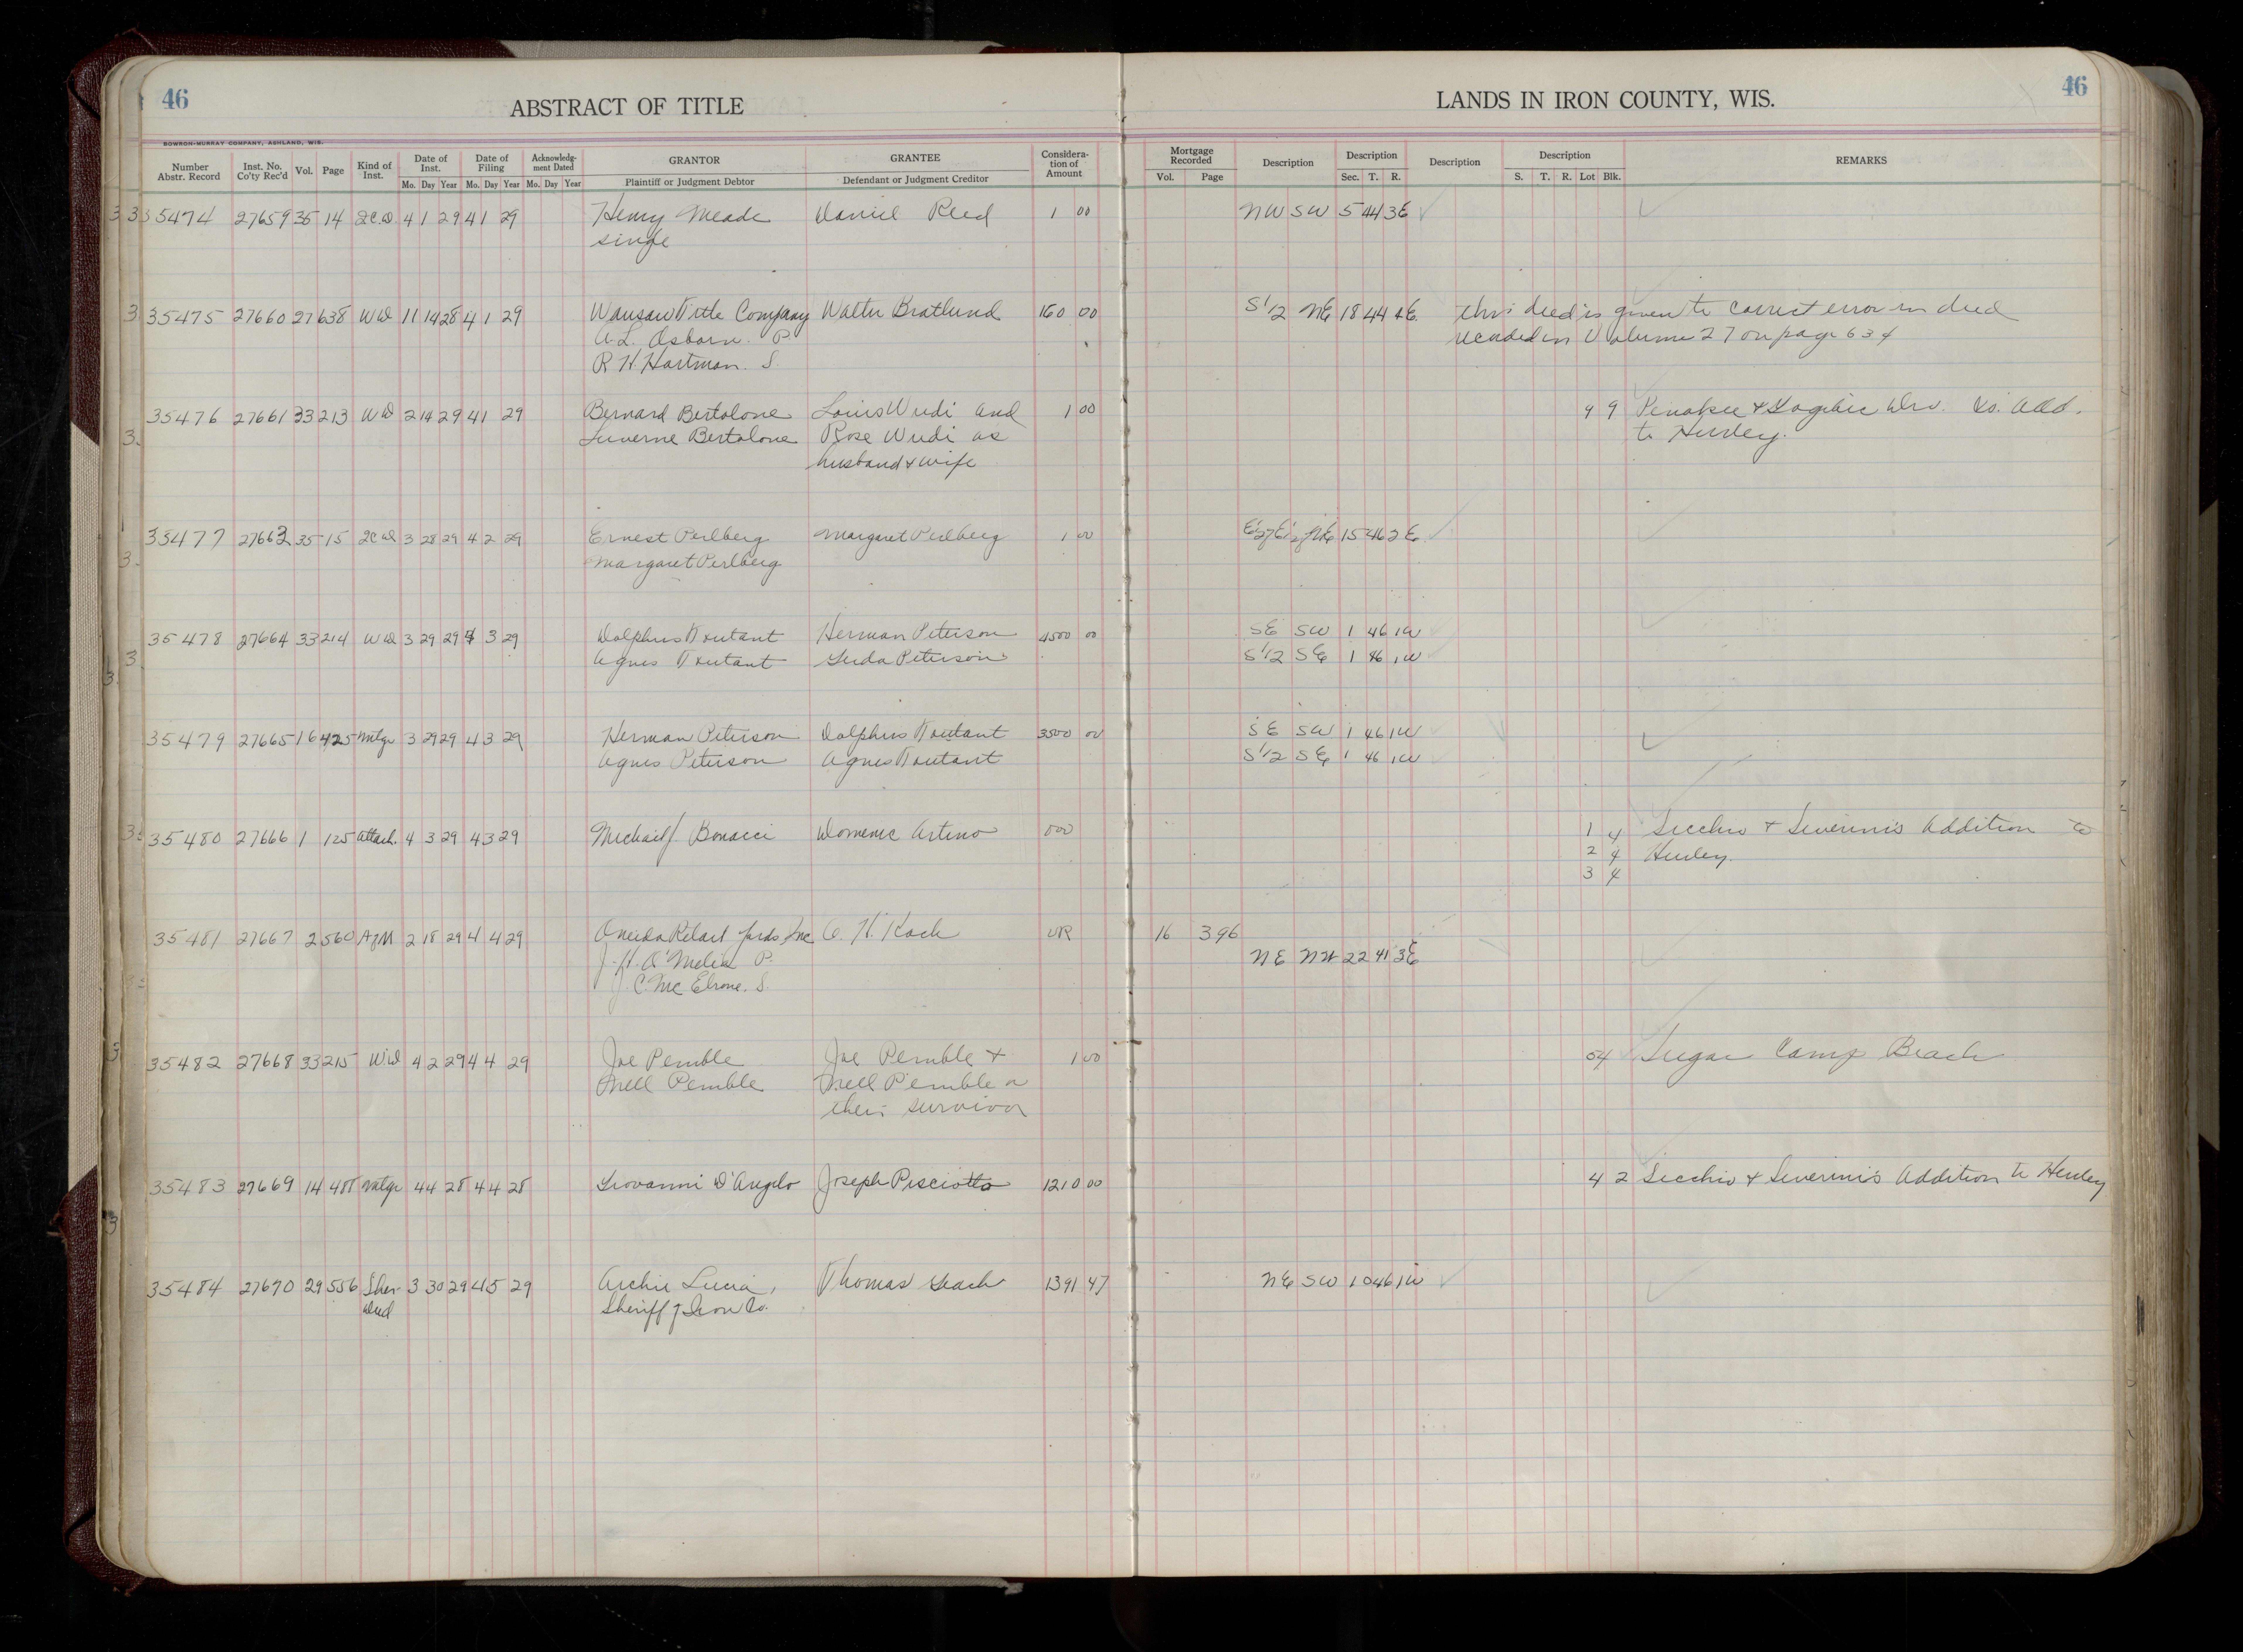 46
ABSTRACT OF TITLE
LANDS IN IRON COUNTY, WIS.
46
BOWRON-MURRAY COMPANY, ASHLAND, WIS.
Number Abstr. Record Inst. No. Co'ty Rec'd Vol. Page Kind of Inst. Date of Inst. Mo. Day Year Date of Filing Mo. Day Year Acknowledg-ment Dated Mo. Day Year GRANTOR Plaintiff or Judgment Debtor GRANTEE Defendant or Judgment Creditor Considera-tion of Amount Mortgage Recorded Vol. Page Description Description Sec. T. R. Description Description S. T. R. Lot Blk. REMARKS
35474 27659 35 14 2CD 4 1 29 4 1 29 Henry Meade Daniel Reed 1 00 NW SW 5 44 3E
single
35475 27660 27 638 WD 11 14 28 4 1 29 Wausau Title Company Walter Bratlund 160 00 S1/2 NE 18 44 E. This deed is given to correct error in deed
A.L. Osborn. P recorded in Volume 27 on page 634
R H. Hartman. S
35476 27661 33 213 WD 2 14 29 4 1 29 Bernard Bertolone Louis Wudi and 1 00 9 9 Penokee & Gogebic Dev. Co. Add.
Luverne Bertolone Rose Wudi as to Hurley.
husband & wife
35477 27663 35 15 2CD 3 28 29 4 2 29 Ernest Perlberg Margaret Perlberg 1 00 E1/2 of E1/2 of NE 15 46 2E
Margaret Perlberg
35478 27664 33 214 WD 3 29 29 4 3 29 Dolphus Toutant Herman Peterson 4500 00 SE SW 1 46 1W
Agnes Toutant Gerda Peterson S1/2 SE 1 46 1W
35479 27665 16 425 Mtge 3 29 29 4 3 29 Herman Peterson Dolphus Toutant 3500 00 SE SW 1 46 1W
Agnes Peterson Agnes Toutant S1/2 SE 1 46 1W
35480 27666 1 125 Attach. 4 3 29 4 3 29 Michael J. Bonacci Domenic Artino 000 1 4 Secchio & Severini's Addition to
2 4 Hurley.
3 4
35481 27667 2 560 AfM 2 18 29 4 4 29 Oneida Retail Yards Inc. Koch VR 16 396
J. H. O'Melia P. NE NW 22 41 3E
J. C. McElrone. S.
35482 27668 33 215 WD 4 2 29 4 4 29 Joe Pemble Joe Pemble & 1 00 54 Sugar Camp Beach
Nell Pemble Nell Pemble or
their survivor
35483 27669 14 488 Mtge 4 4 28 4 4 28 Giovanni D'Angelo Joseph Pisciotta 1210 00 4 2 Secchio & Severini's Addition to Hurley
35484 27670 29 556 Sher. 3 30 29 4 5 29 Archie Lucia, Thomas Gach 1391 47 NE SW 10 46 1W
Deed Sheriff of Iron Co.